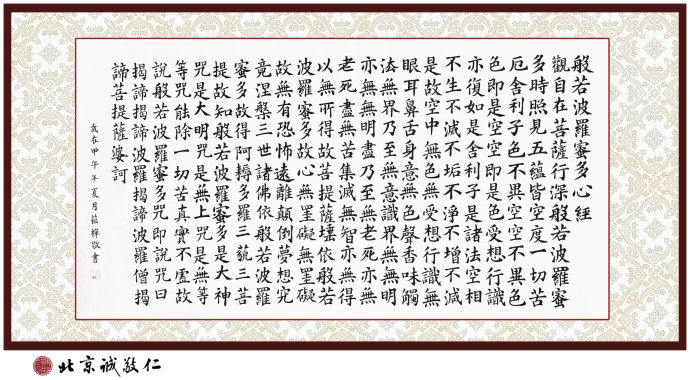 般若波羅蜜多心經
觀自在菩薩行深般若波羅蜜
多時照見五蘊皆空度一切苦
厄舍利子色不異空空不異色
色即是空空即是色受想行識
亦復如是舍利子是諸法空相
不生不滅不垢不淨不增不減
是故空中無色無受想行識無
眼耳鼻舌身意無色聲香味觸
法無界乃至無意識界無無明
亦無無明盡乃至無老死亦無
老死盡無苦集滅無智亦無得
以無所得故菩提薩埵依般若
波羅蜜多故心無罣礙無罣礙
故無有恐怖遠離顛倒夢想究
竟涅槃三世諸佛依般若波羅
蜜多故得阿耨多羅三藐三菩
提故知般若波羅蜜多是大神
咒是大明咒是無上咒是無等
等咒能除一切苦真實不虛故
說般若波羅蜜多咒即說咒曰
揭諦揭諦波羅揭諦波羅僧揭
諦菩提薩婆訶
歲在甲午年夏月敬書
北京诚敬仁